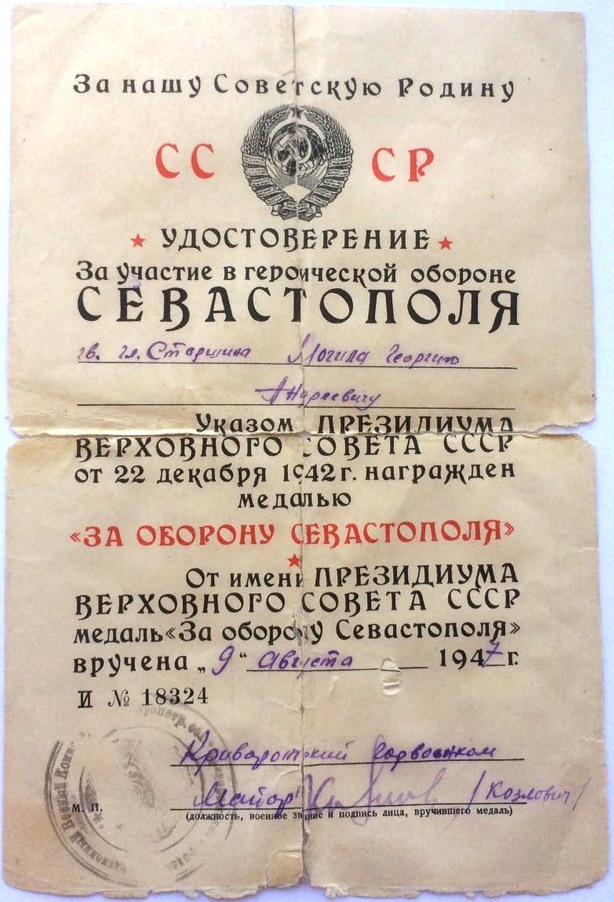 За нашу Советскую Родину
СССР
★ УДОСТОВЕРЕНИЕ ★
За участие в героической обороне
СЕВАСТОПОЛЯ
гв. гл. Старшина Могила Георгию
Андреевичу
Указом ПРЕЗИДИУМА
ВЕРХОВНОГО СОВЕТА СССР
от 22 декабря 1942 г. награжден
медалью
«ЗА ОБОРОНУ СЕВАСТОПОЛЯ»
★
От имени ПРЕЗИДИУМА
ВЕРХОВНОГО СОВЕТА СССР
медаль «За оборону Севастополя»
вручена „9“ Августа 1947 г.
И № 18324
Криворожский Горвоенком
Майор /Козлович/
М. П.
(должность, военное звание и подпись лица, вручившего медаль)